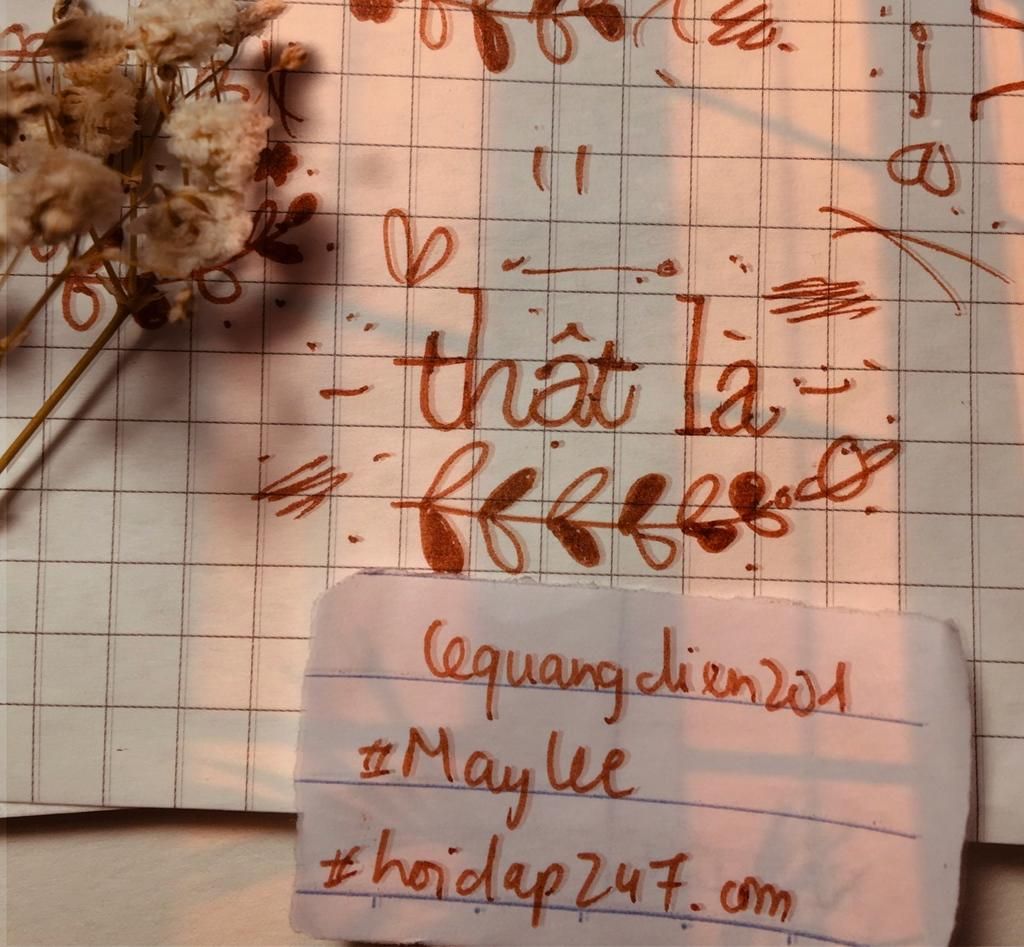 thật là
lequangdien201
#May lee
#hoidap247.com